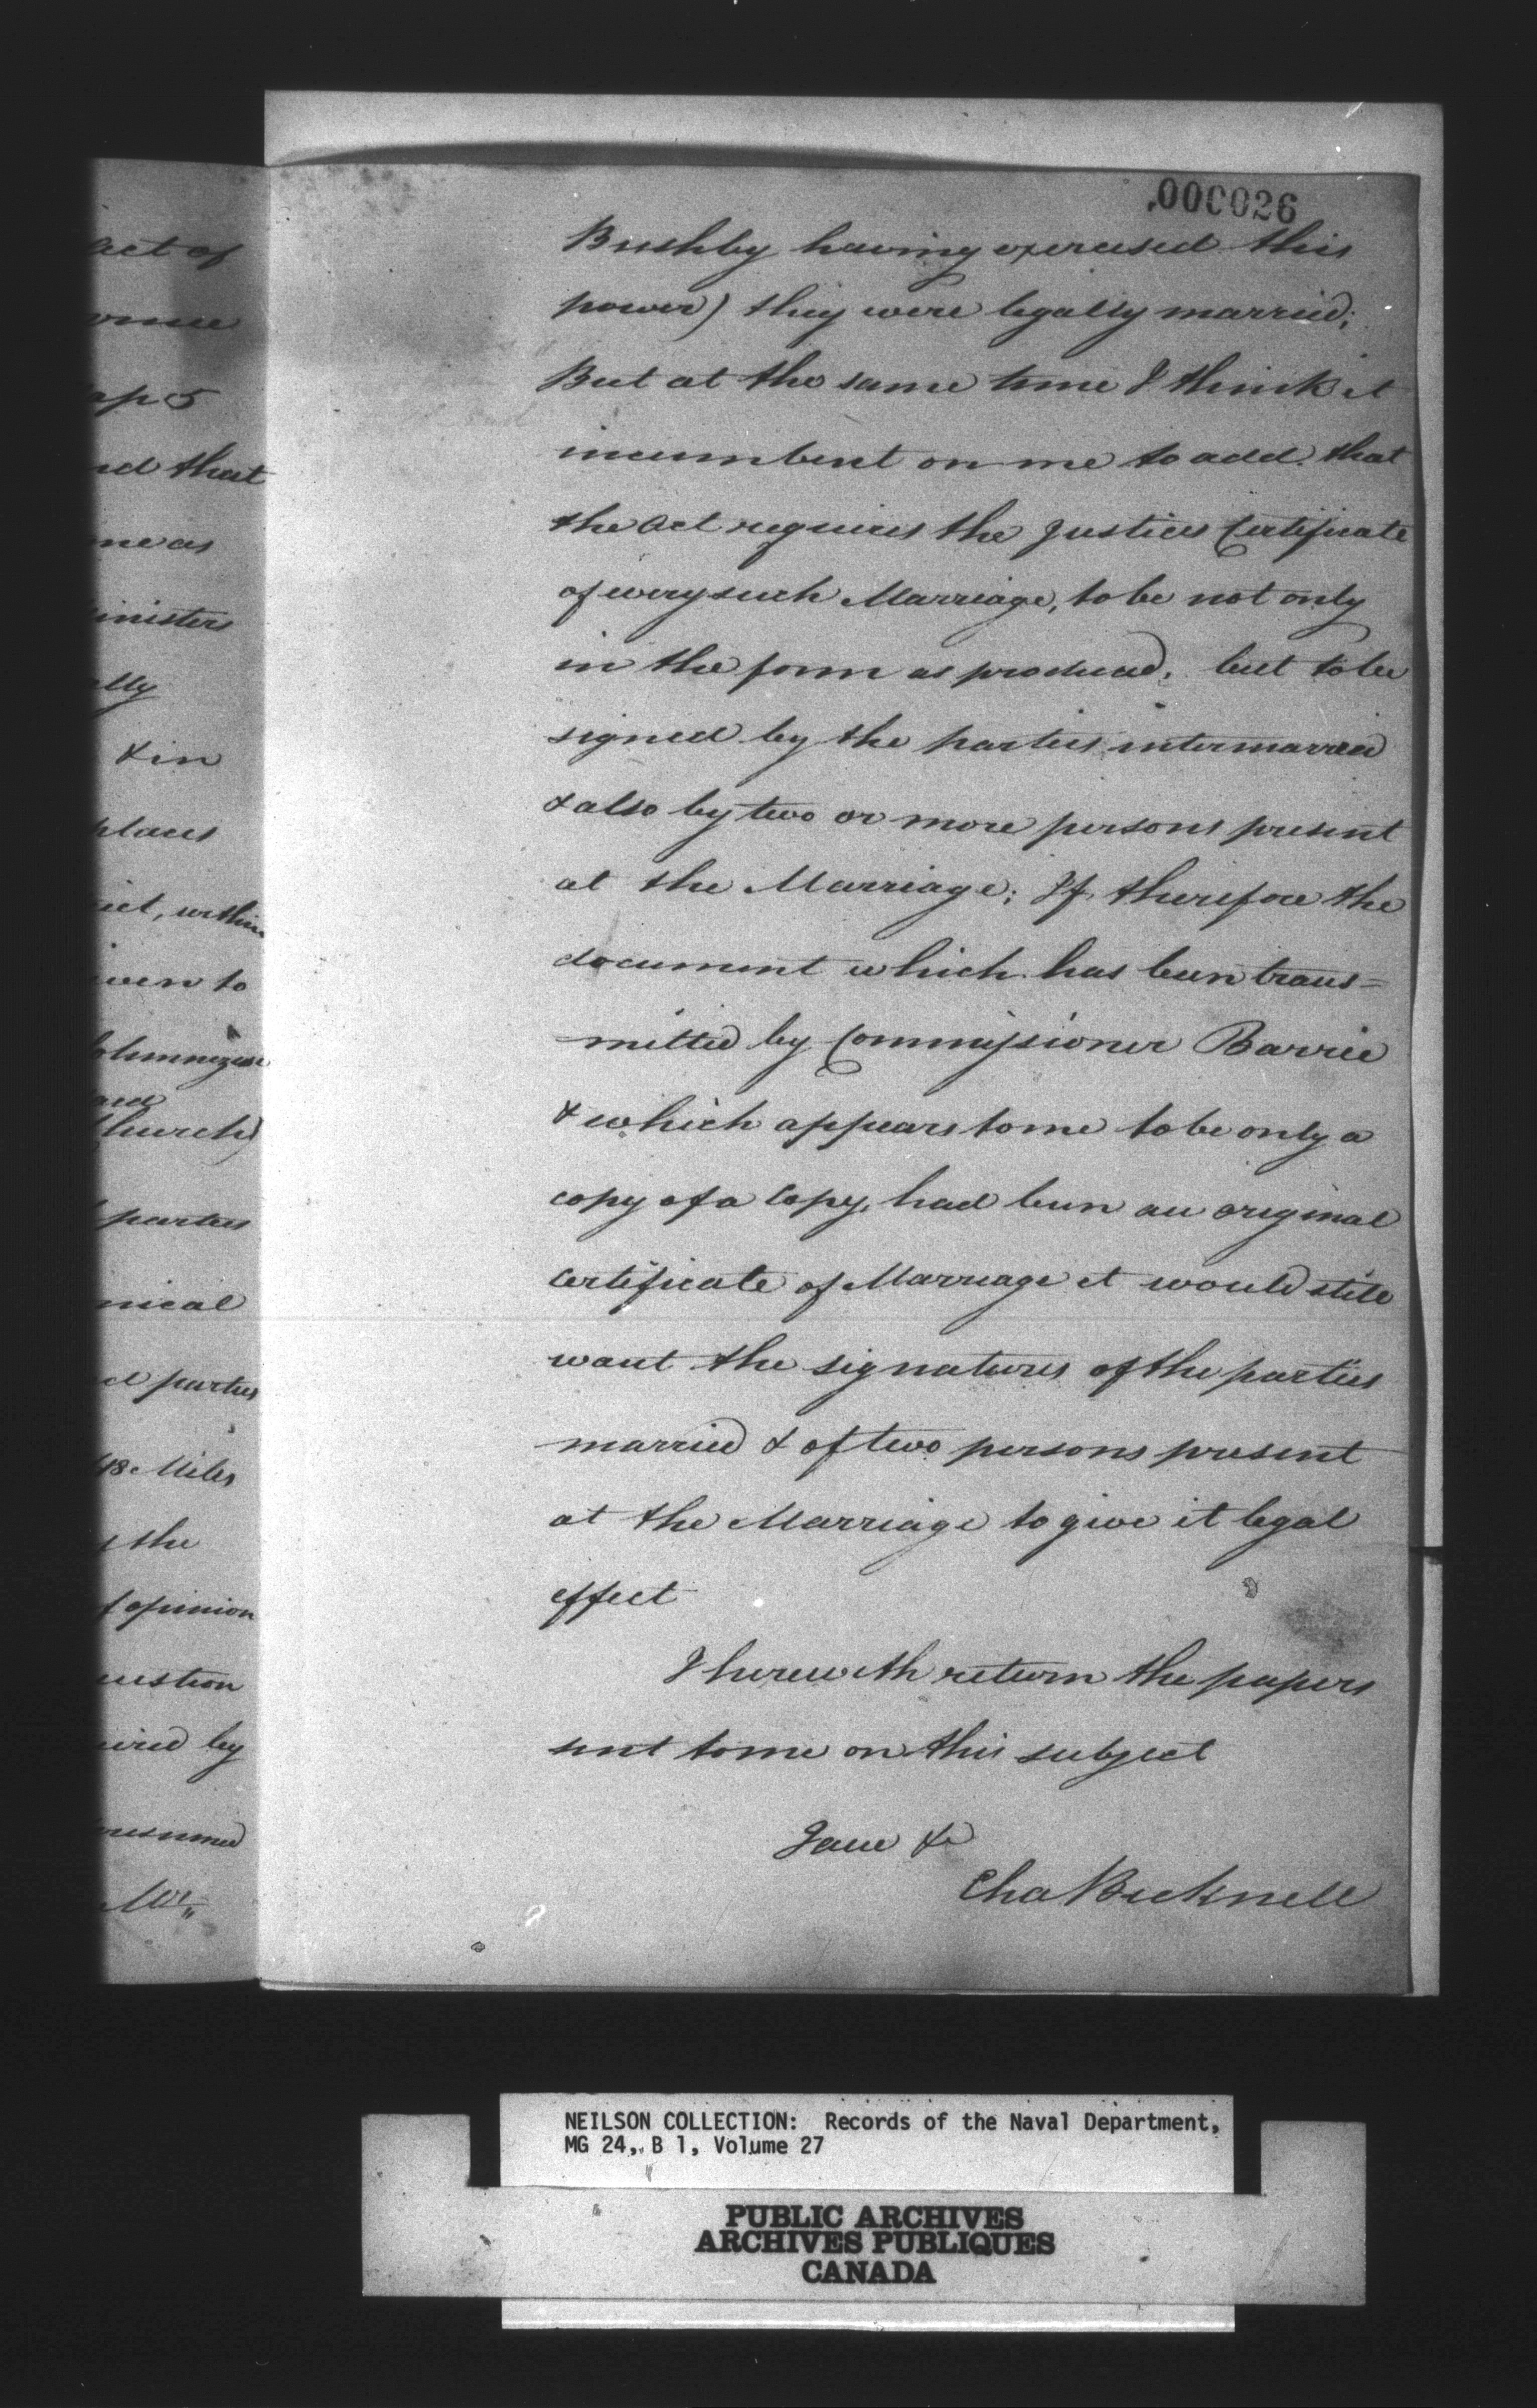 act of
ap 5
nd that
me as
inisters
ally
& in
places
ict, within
iven to
olemnize
and
Church)
parties
nical
ed parties
18 Miles
the
f opinion
uestion
uired by
resumed
Mr,,
000026
Bushby having exercised this
power) they were legally married;
But at the same time I think it
incumbent on me to add that
the Act requires the Justices Certificate
of every such Marriage, to be not only
in the form as produced, but to be
signed by the parties intermarried
& also by two or more persons present
at the Marriage; If therefore the
document which has been trans=
mitted by Commissioner Barrie
& which appears to me to be only a
copy of a Copy, had been an original
Certificate of Marriage it would still
want the signatures of the parties
married & of two persons present
at the Marriage to give it legal
effect
I herewith return the papers
sent to me on this subject
I am &c
Cha Bicknell
NEILSON COLLECTION: Records of the Naval Department,
MG 24, B 1, Volume 27
PUBLIC ARCHIVES
ARCHIVES PUBLIQUES
CANADA